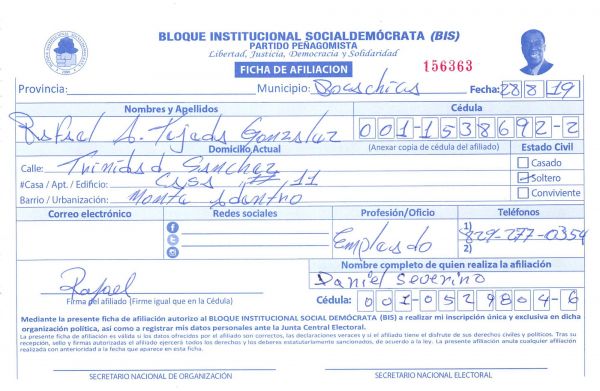 BLOQUE INSTITUCIONAL SOCIALDEMÓCRATA (BIS)
PARTIDO PEÑAGOMISTA
Libertad, Justicia, Democracia y Solidaridad
FICHA DE AFILIACION
156363
Provincia: Municipio: Bocachicas Fecha: 28/8/19
Nombres y Apellidos Cédula
Rafael A. Tejada Gonzalez 001-1538692-2
Domicilio Actual (Anexar copia de cédula del afiliado) Estado Civil
Calle: Trinidad Sanchez Casado
#Casa / Apt. / Edificio: Casa # 11 Soltero
Barrio / Urbanización: Monte Adentro Conviviente
Correo electrónico Redes sociales Profesión/Oficio Teléfonos
Empleado 1) 829-277-0354
2)
Nombre completo de quien realiza la afiliación
Rafael Daniel Severino
Firma del afiliado (Firme igual que en la Cédula) Cédula: 001-0529804-6
Mediante la presente ficha de afiliación autorizo al BLOQUE INSTITUCIONAL SOCIAL DEMÓCRATA (BIS) a realizar mi inscripción única y exclusiva en dicha
organización política, así como a registrar mis datos personales ante la Junta Central Electoral.
La presente ficha de afiliación es válida si los datos ofrecidos por el afiliado son correctos, las declaraciones veraces y si el afiliado tiene el disfrute de sus derechos civiles y políticos. Tras su
recepción, sello y firmas autorizadas el afiliado ejercerá todos los derechos y los deberes estatutariamente sancionados, de acuerdo a la ley. La presente afiliación anula cualquier afiliación
realizada con anterioridad a la fecha que aparece en esta ficha.
SECRETARIO NACIONAL DE ORGANIZACIÓN SECRETARIO NACIONAL ELECTORAL